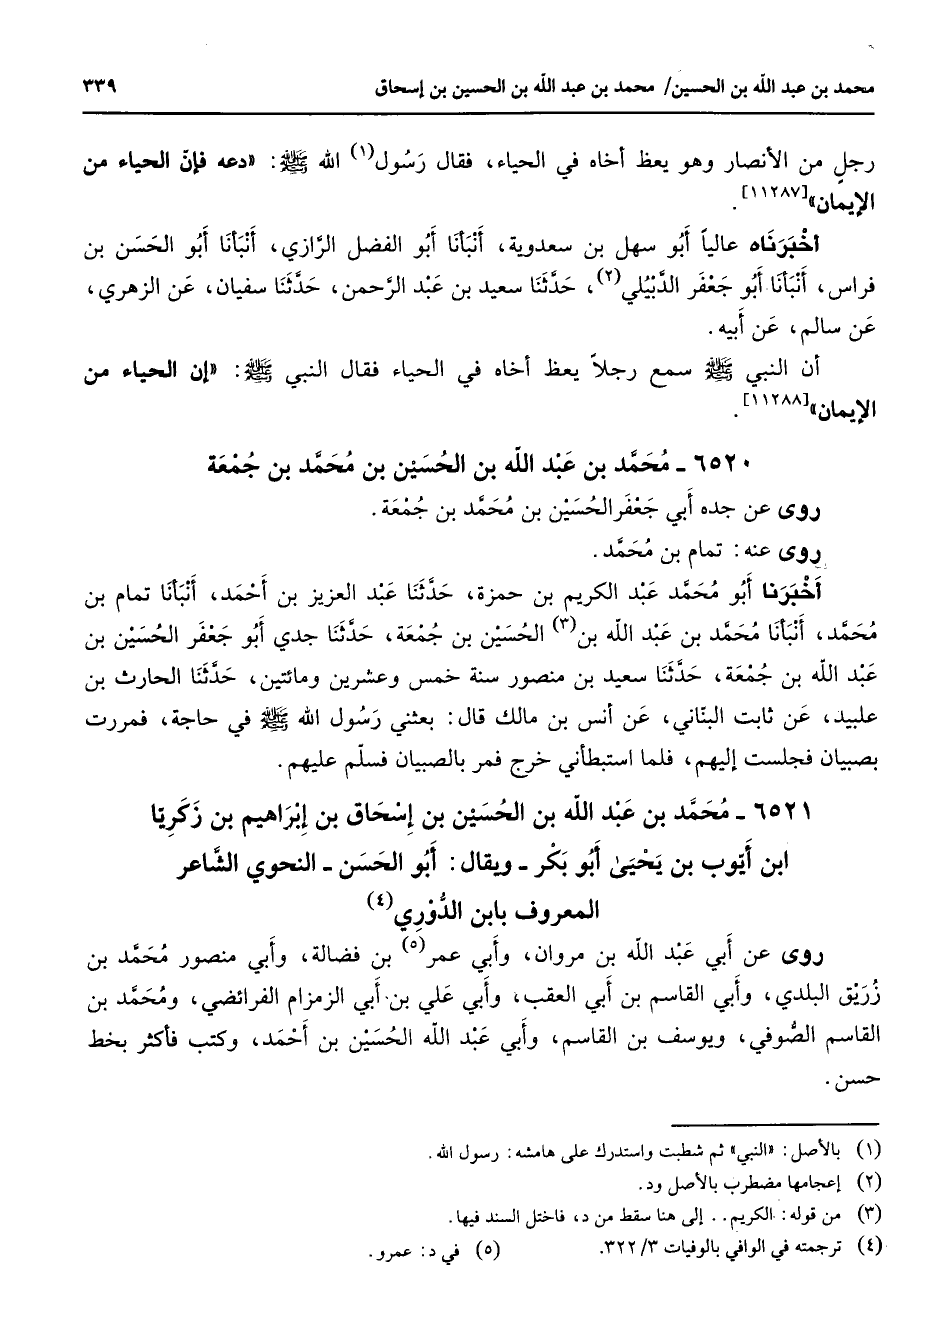 محمد بن عبد اللّه بن الحسين/ محمد بن عبد اللّه بن الحسين بن إسحاق ٣٣٩
رجلٍ من الأنصار وهو يعظ أخاه في الحياء، فقال رَسُول(١) الله ﷺ: «دعه فإنّ الحياء من
الإيمان»[١١٢٨٧].
أخْبَرَنَاه عالياً أَبُو سهل بن سعدوية، أَنْبَأنَا أَبُو الفضل الرَّازي، أَنْبَأنَا أَبُو الحَسَن بن
فراس، أَنْبَأنَا أَبُو جَعْفَر الدَّيْبُلي(٢)، حَدَّثَنَا سعيد بن عَبْد الرَّحمن، حَدَّثَنَا سفيان، عَن الزهري،
عَن سالم، عَن أَبيه.
أن النبي ﷺ سمع رجلاً يعظ أخاه في الحياء فقال النبي ﷺ: «إن الحياء من
الإيمان»[١١٢٨٨].
٦٥٢٠ ـ مُحَمَّد بن عَبْد اللّه بن الحُسَيْن بن مُحَمَّد بن جُمْعَة
روى عن جده أَبي جَعْفَر الحُسَيْن بن مُحَمَّد بن جُمْعَة.
روى عنه: تمام بن مُحَمَّد.
أَخْبَرَنا أَبُو مُحَمَّد عَبْد الكريم بن حمزة، حَدَّثَنَا عَبْد العزيز بن أَحْمَد، أَنْبَأنَا تمام بن
مُحَمَّد، أَنْبَأنَا مُحَمَّد بن عَبْد الله بن(٣) الحُسَيْن بن جُمْعَة، حَدَّثَنَا جدي أَبُو جَعْفَر الحُسَيْن بن
عَبْد الله بن جُمْعَة، حَدَّثَنَا سعيد بن منصور سنة خمس وعشرين ومائتين، حَدَّثَنَا الحارث بن
عبيد، عَن ثابت البنّاني، عَن أنس بن مالك قال: بعثني رَسُول الله ﷺ في حاجة، فمررت
بصبيان فجلست إليهم، فلما استبطأني خرج فمر بالصبيان فسلّم عليهم.
٦٥٢١ ـ مُحَمَّد بن عَبْد الله بن الحُسَيْن بن إِسْحَاق بن إِبْرَاهيم بن زَكَريّا
ابن أَيّوب بن يَحْيَىٰ أَبُو بَكْر ـ ويقال: أَبُو الحَسَن ـ النحوي الشَّاعر
المعروف بابن الدُّوْرِي(٤)
روى عن أَبي عَبْد اللّه بن مروان، وأَبي عمر(٥) بن فضالة، وأَبي منصور مُحَمَّد بن
زُرَيْق البلدي، وأَبي القاسم بن أَبي العقب، وأَبي عَلي بن أَبي الزمزام الفرائضي، ومُحَمَّد بن
القاسم الصُّوفي، ويوسف بن القاسم، وأَبي عَبْد الله الحُسَيْن بن أَحْمَد، وكتب فأكثر بخط
حسن.
(١) بالأصل: «النبي» ثم شطبت واستدرك على هامشه: رسول الله.
(٢) إعجامها مضطرب بالأصل ود.
(٣) من قوله: الكريم.. إلى هنا سقط من د، فاختل السند فيها.
(٤) ترجمته في الوافي بالوفيات ٣/ ٣٢٢. (٥) في د: عمرو.